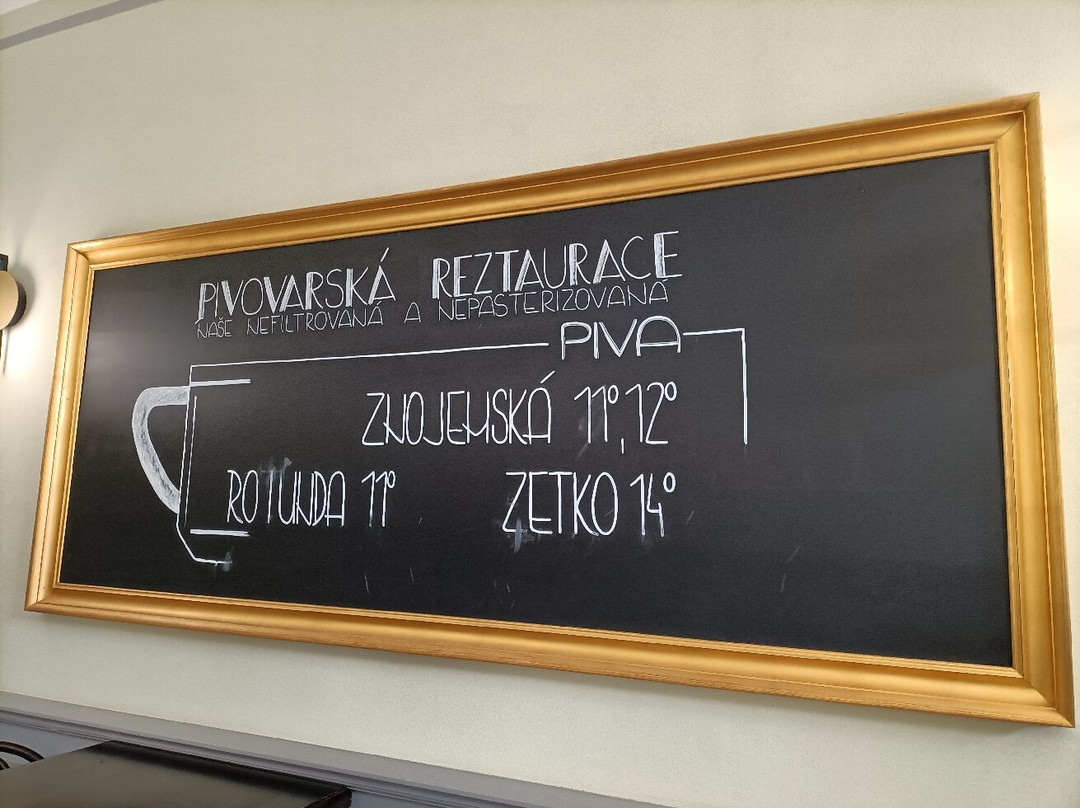 PIVOVARSKÁ REZTAURACE
NAŠE NEFILTROVANÁ A NEPASTERIZOVANÁ
PIVA
ZNOJEMSKÁ 11°, 12°
ROTUNDA 11° ZETKO 14°